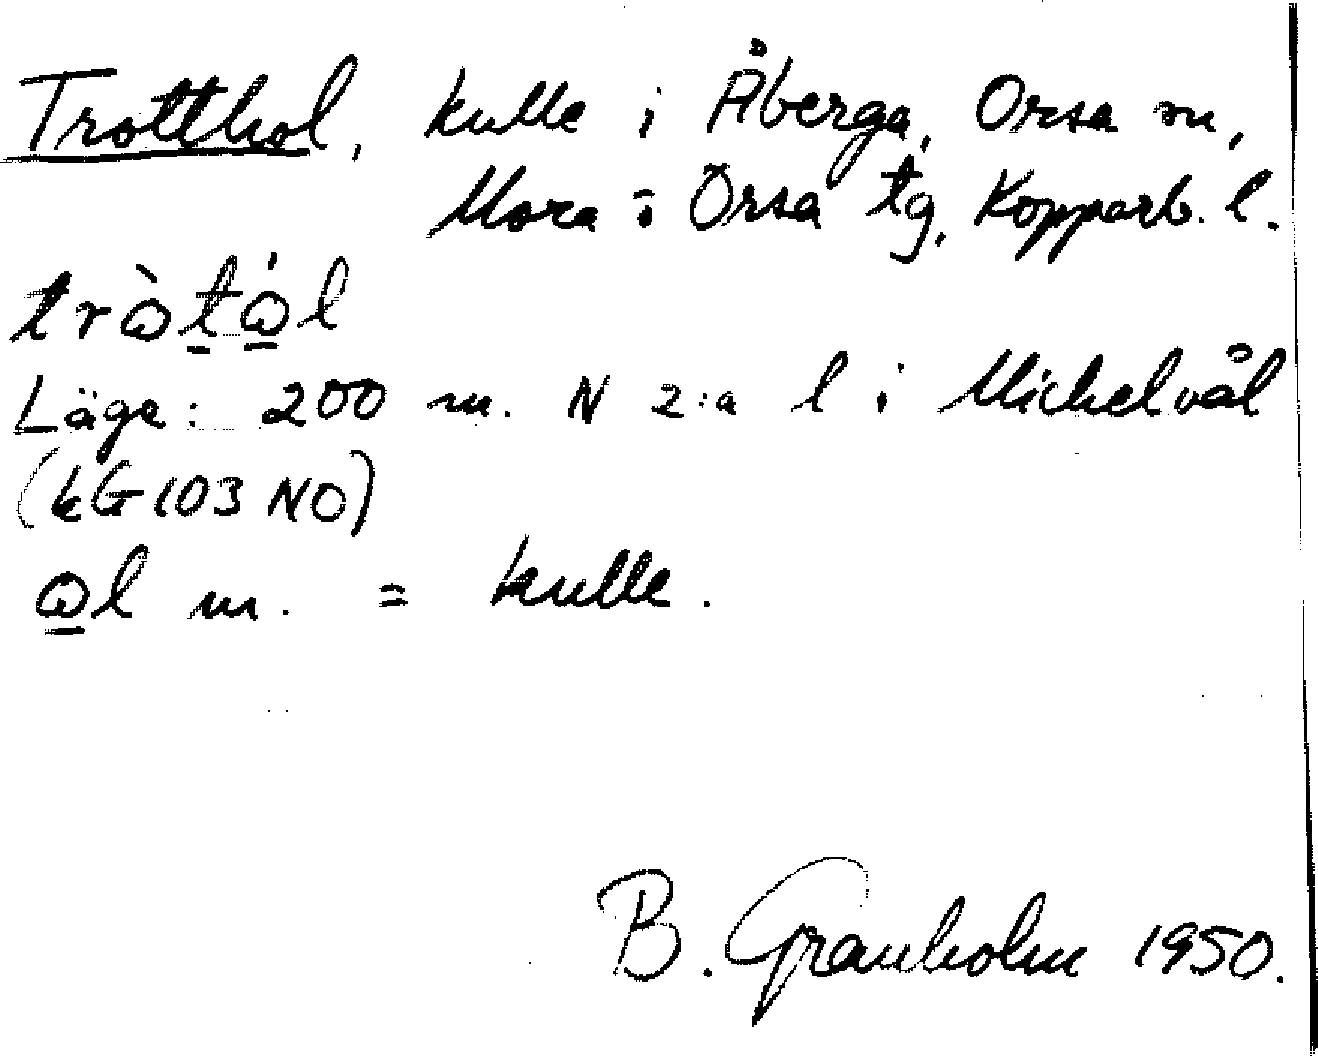 Trotthol, kulle i Åberga, Orsa sn,
Mora o Orsa tg, Kopparb. l.
trò̱ṯó̱l
Läge: 200 m. N 2:a l i Mickelvål
(kG 103 NO)
o̱l m. = kulle.
B. Granholm 1950.